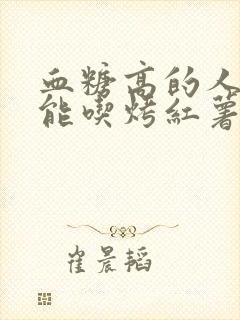 血糖高的人
能喫烤紅薯
崔晨韬